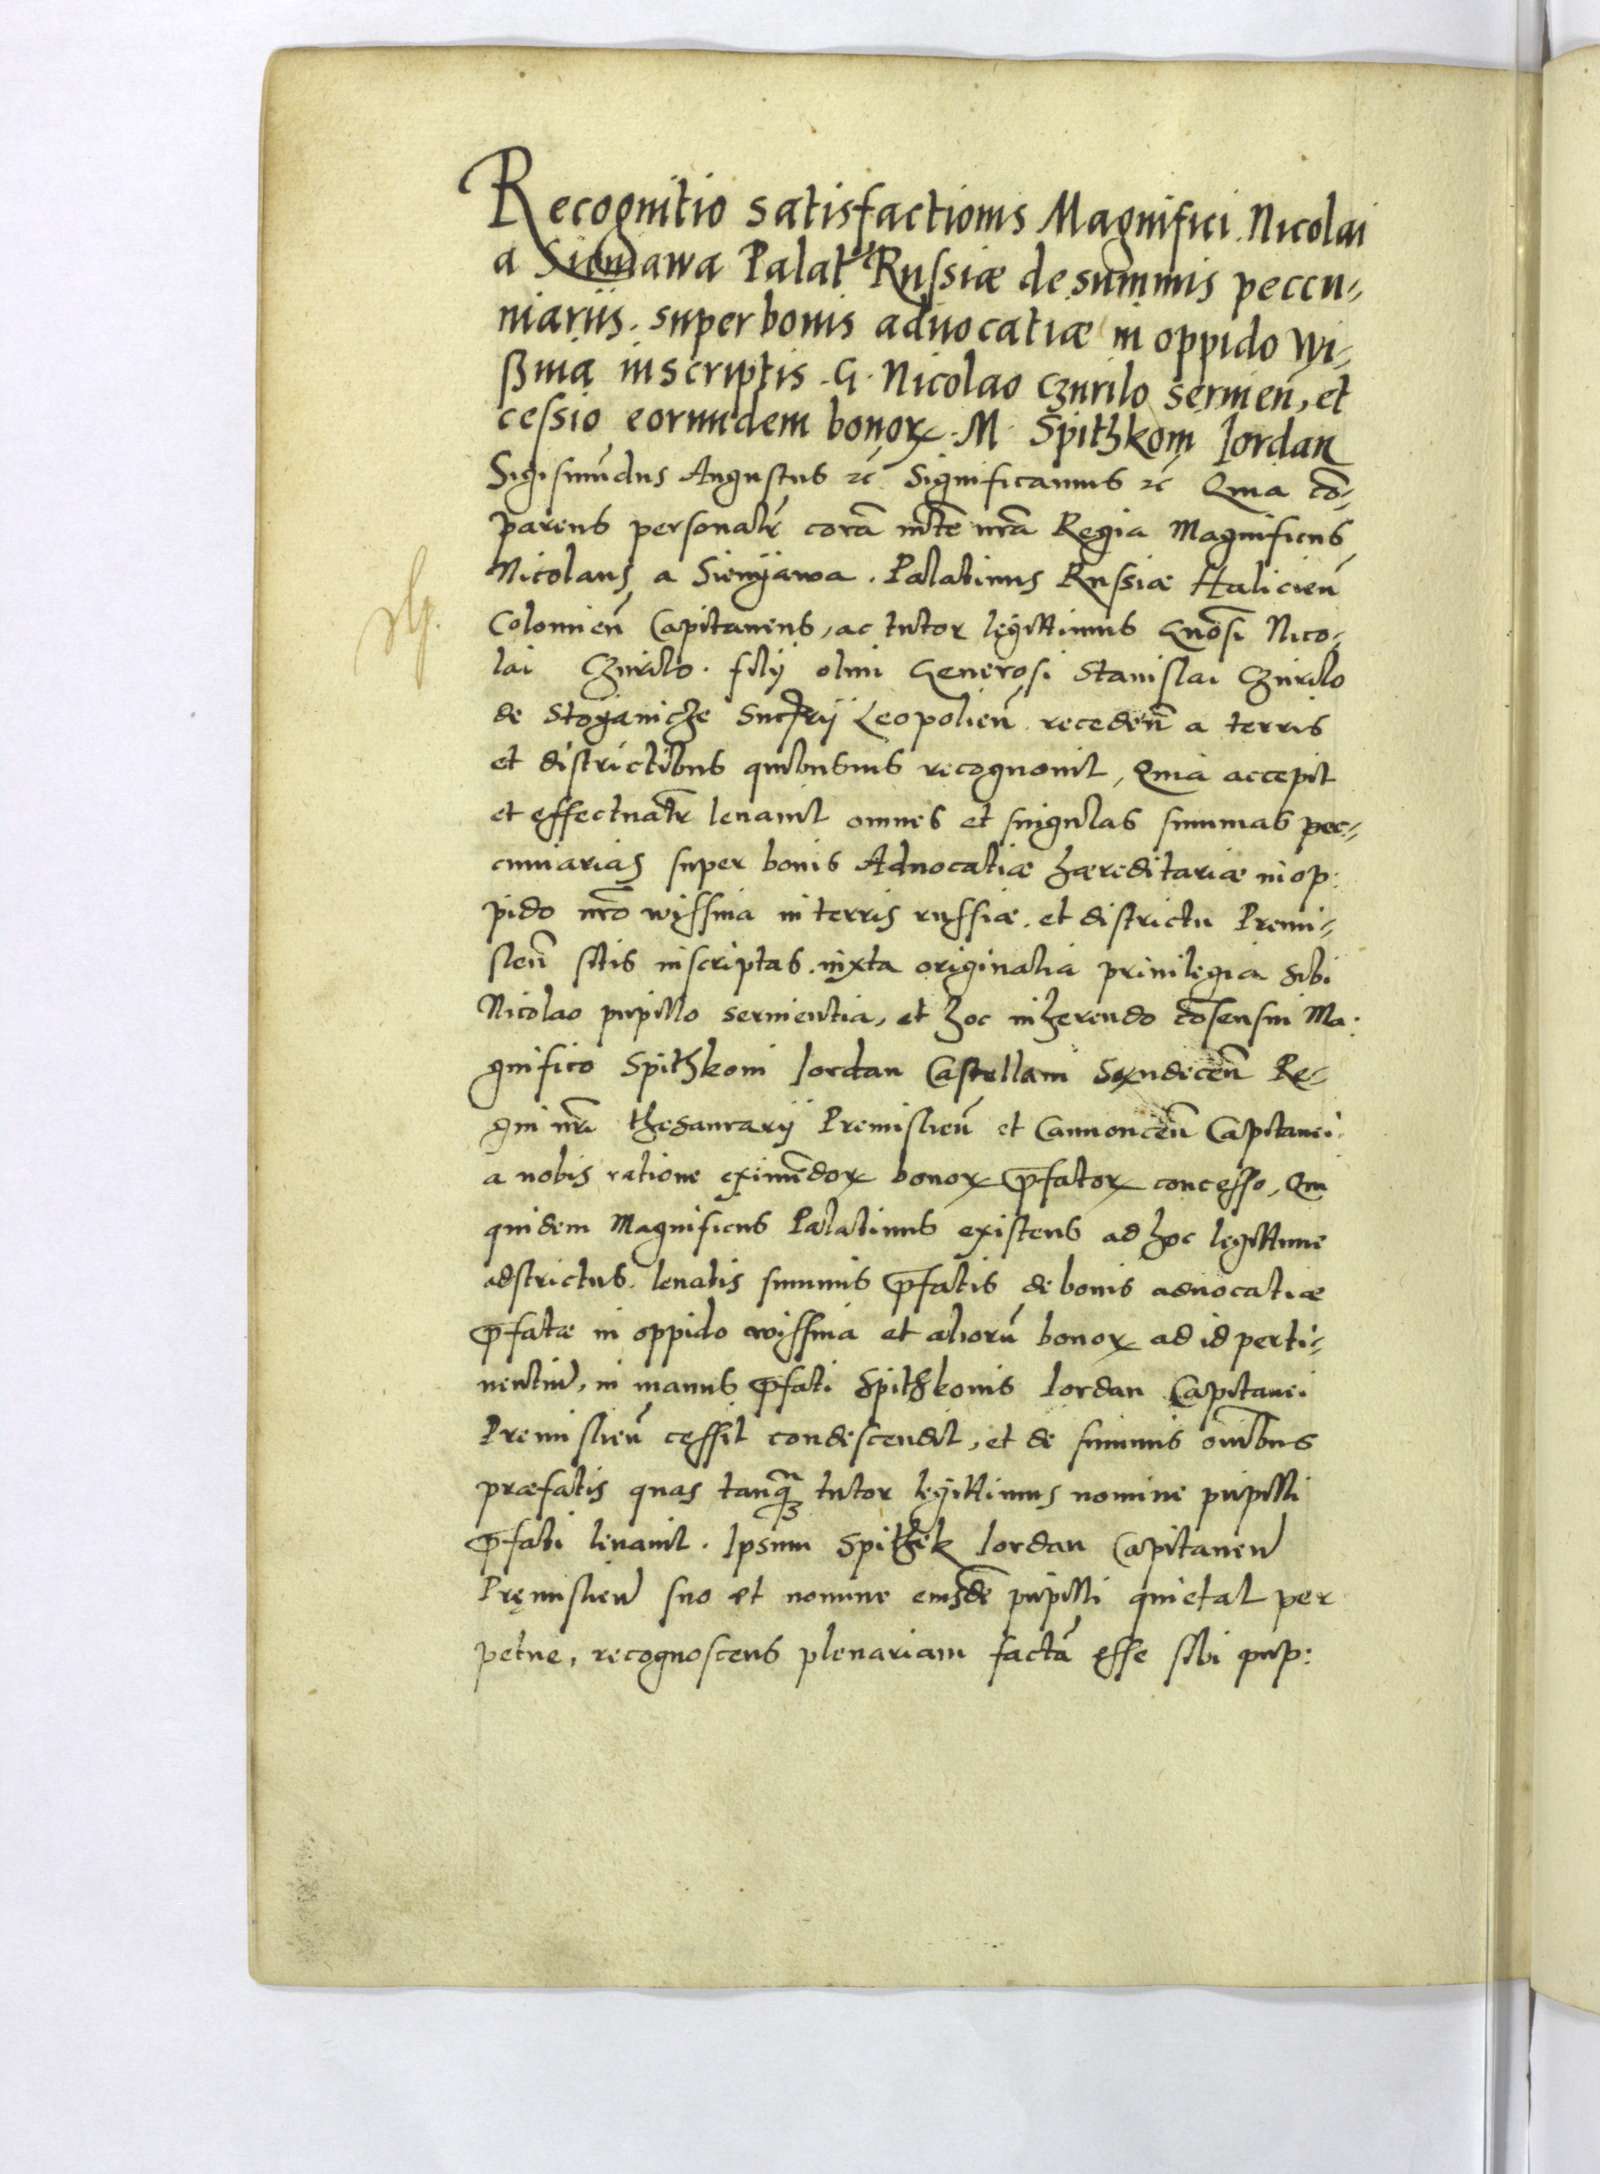 Recognitio satisfactionis Magnifici Nicolai
a Sieniawa Palat Russiæ de sum̃mis peccu-
niariis. super bonis aduocatiæ in oppido Wi-
ßnia inscriptis .G. Nicolao Czurilo seruien̄, et
cessio eorundem bonoꝝ .M. Spithkom Iordan
Sigismũdus Augustus ꝛc̄ Significamus ꝛc̄ Quia cō-
parens personalr̄ corã mt̄e nr̄a Regia Magnificus
Nicolaus a Sienyawa. Palatinus Russiæ Halicien̄
Colomien̄ Capitaneus, ac tutor legittimus Gnōsi Nico-
lai Czurilo. filij olim Generosi Stanislai Czurilo
de Stoganicze Leopolien̄ receden̄ a terris
et districtibus quibusuis recognouit, Quia accepit
et effectualr̄ leuauit omnes et singulas summas pec-
cuniarias super bonis Aduocatiæ hæreditariæ in op:
pido nr̄o wissnia in terris russiæ. et districtu Premi-
slen̄ sitis inscriptas. iuxta originalia priuilegia sibi
Nicolao pupillo seruientia, et hoc inherendo cōsensui Ma:
gnifico Spithkoni Iordan Castellani Sandecen̄ Re-
gni nr̄i thesaurarij Premislien̄ et Camioncen̄ Capitanei
a nobis ratione eximēdoꝝ bonoꝝ p̄fatoꝝ concesso, Qui
quidem Magnificus Palatinus existens ad hoc legittime
adstrictus. leuatis summis p̄fatis de bonis aduocatiæ
p̄fatæ in oppido wissnia et aliorũ bonoꝝ ad id perti-
nentiũ, in manus p̄fati Spithkonis Iordan Capitanei
Premislien̄ cessit condescendit, et de summis oīnibus
præfatis quas tanqȝ̃ tutor legittimus nomine pupilli
p̄fati leuauit. Ipsum Spithek Iordan Capitaneũ
Pręmislien̄ suo et nomine eiusdē pupilli quietat per
petue, recognoscens plenariam factã esse sibi pup: